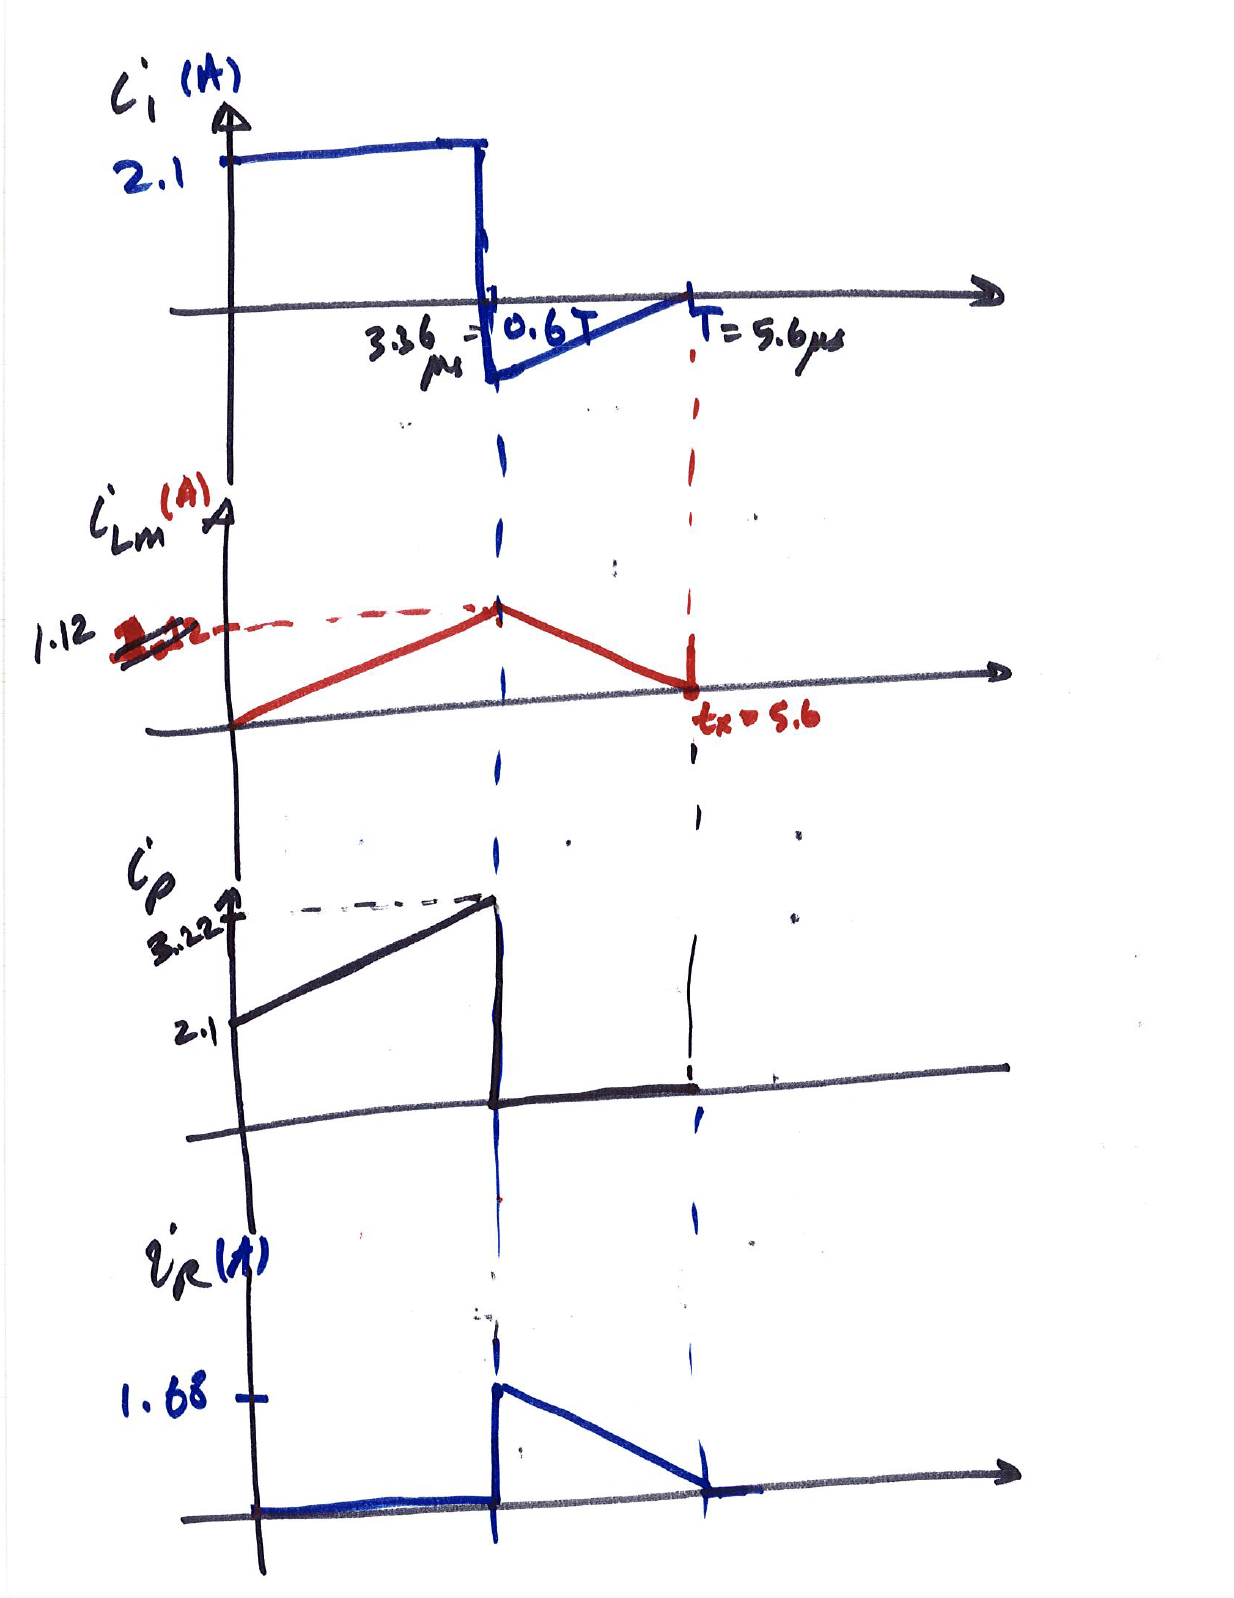 i₁ (A)
2.1
3.36 μs = 0.6T
T = 5.6 μs
iLm (A)
1.12
tx = 5.6
ip
3.22
2.1
iR (A)
1.68